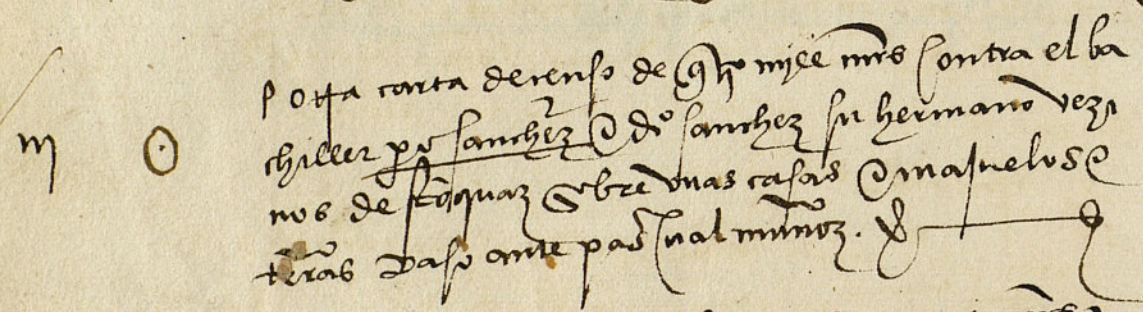 otra carta de censo de mill mrs contra el ba
m chiller po sanchez e do sanchez su hermano vezi
nos de sobre unas casas e majuelos e
trras paso ante pascual muñoz.